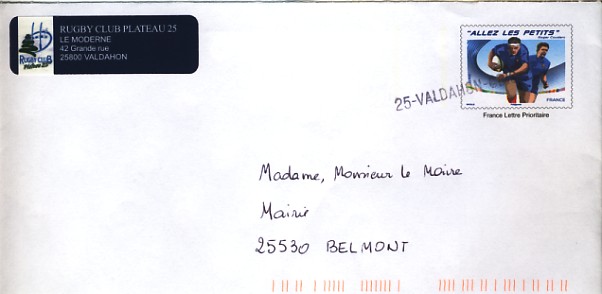 RUGBY CLUB PLATEAU 25
LE MODERNE
42 Grande rue
25800 VALDAHON
RUGBY CLUB
"ALLEZ LES PETITS"
Roger Couderc
FRANCE
25-VALDAHON
France Lettre Prioritaire
Madame, Monsieur le Maire
Mairie
25530 BELMONT